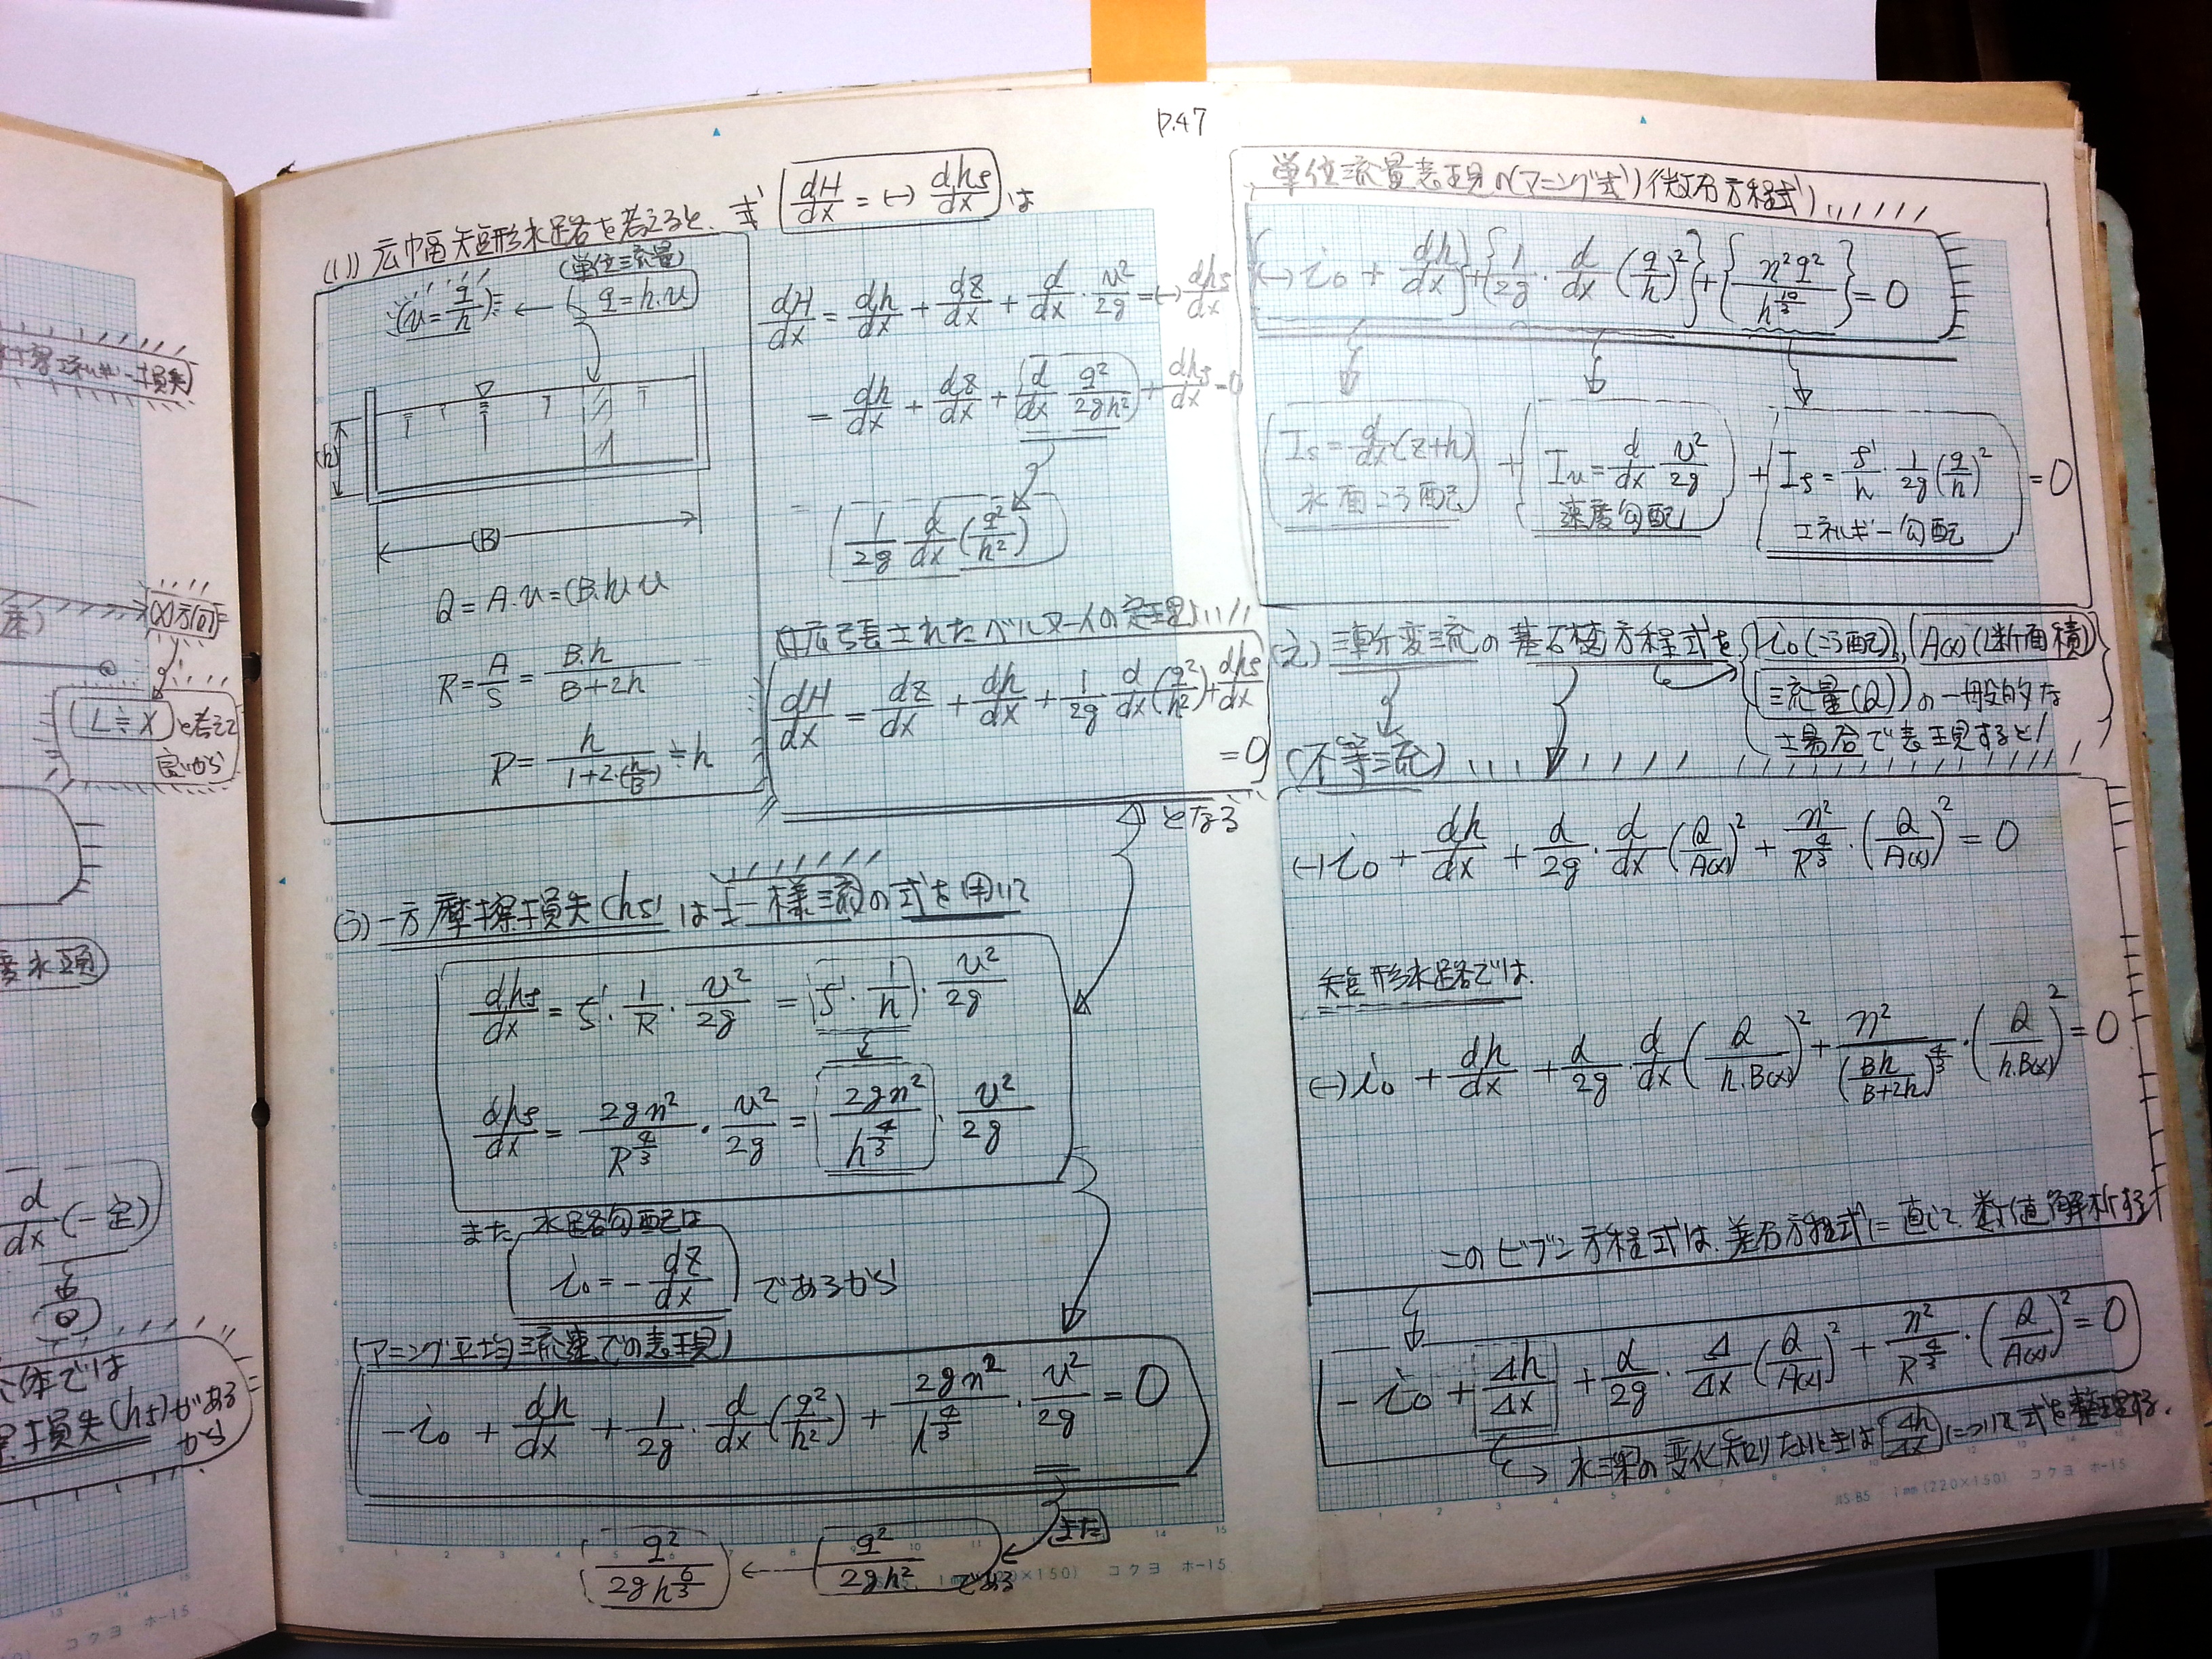 P.47
(い) 広巾畐矩形水路を考えると、式 dH/dx = (-) dhf/dx は
(単位流量)
(v = q/h) ← (q = h.v)
(h)
(B)
Q = A.v = (B.h).v
R = A/S = B.h/(B+2h)
R = h/(1+2.(h/B)) ≒ h
dH/dx = dh/dx + dz/dx + d/dx . v²/2g = (-) dhf/dx
= dh/dx + dz/dx + (d/dx q²/2gh²) + dhf/dx = 0
(1/2g d/dx (q²/h²))
拡張されたベルヌーイの定理
dH/dx = dz/dx + dh/dx + 1/2g d/dx (q²/h²) + dhf/dx
= 0
となる
(ろ) 一方摩擦損失(hf)は 一様流の式を用いて
dhf/dx = f' . 1/R . v²/2g = (f' . 1/h) . v²/2g
dhf/dx = 2gn²/R^(4/3) . v²/2g = 2gn²/h^(4/3) . v²/2g
また 水路勾配は
i₀ = - dz/dx であるから
(マニング平均流速での表現)
- i₀ + dh/dx + 1/2g . d/dx (q²/h²) + 2gn²/h^(4/3) . v²/2g = 0
また
q²/2gh^(6/3) ← q²/2gh² である
単位流量表現の(マニング式)(微分方程式)
{(-) i₀ + dh/dx} + {1/2g . d/dx (q/h)²} + {n²q²/h^(10/3)} = 0
Is = d/dx (z+h)
水面こう配
+ Iv = d/dx v²/2g
速度勾配
+ If = f'/h . 1/2g (q/h)² = 0
エネルギー勾配
(え) 漸変流の基礎方程式を i₀ (こう配), A(x) (断面積)
流量(Q) の一般的な
場合で表現すると
(不等流)
(-) i₀ + dh/dx + α/2g . d/dx (Q/A(x))² + n²/R^(4/3) . (Q/A(x))² = 0
矩形水路では
(-) i₀ + dh/dx + α/2g d/dx (Q/h.B(x))² + n²/(Bh/B+2h)^(4/3) . (Q/h.B(x))² = 0
このビブン方程式は、差分方程式に直して、数値解析する
- i₀ + Δh/Δx + α/2g . Δ/Δx (Q/A(x))² + n²/R^(4/3) . (Q/A(x))² = 0
→ 水深の変化知りたいときは (Δh/Δx) について式を整理する.
(x方向)
(L≒X) と考えて
良いから
d/dx (一定)
損失(hf)がある
から
コクヨ ホ-15
JIS B5 1mm (220×150) コクヨ ホ-15
コクヨ ホ-15